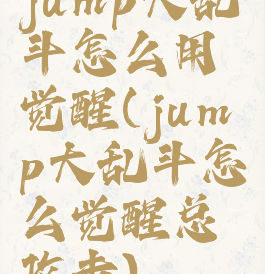 jump大乱
斗怎么用
觉醒(jum
p大乱斗怎
么觉醒总
攻击)